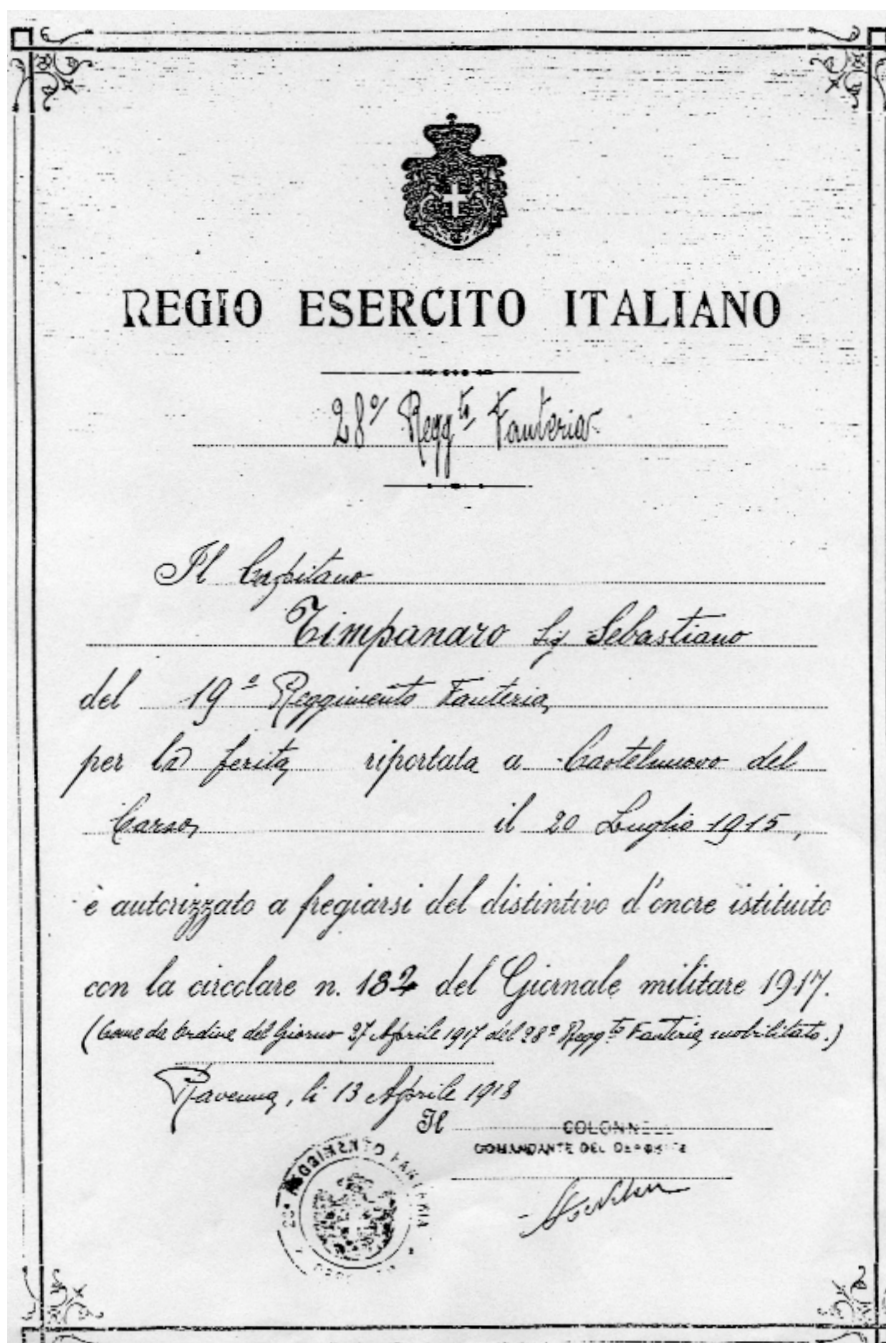 REGIO ESERCITO ITALIANO
28º Reggto Fanteria
Il Capitano
Timpanaro Sig Sebastiano
del 19º Reggimento Fanteria
per la ferita riportata a Castelnuovo del
Carso, il 20 Luglio 1915,
è autorizzato a fregiarsi del distintivo d'onore istituito
con la circolare n. 182 del Giornale militare 1917.
(Come da Ordine del Giorno 27 Aprile 1917 del 28º Reggto Fanteria mobilitato.)
Ravenna, li 13 Aprile 1918
Il COLONNELLO
COMANDANTE DEL DEPOSITO
28º REGGIMENTO FANTERIA